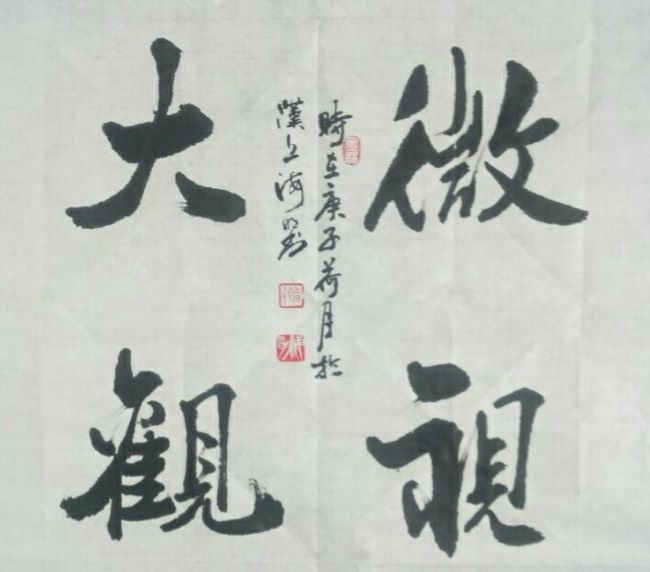 微視
大觀
時在庚子荷月於
漢上海